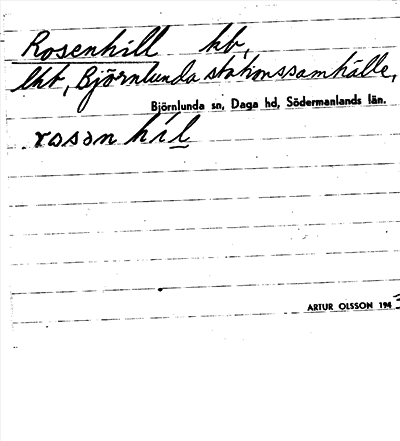 Rosenhill hb,
lht, Björnlunda stationssamhälle,
Björnlunda sn, Daga hd, Södermanlands län.
rosən híl
ARTUR OLSSON 1943